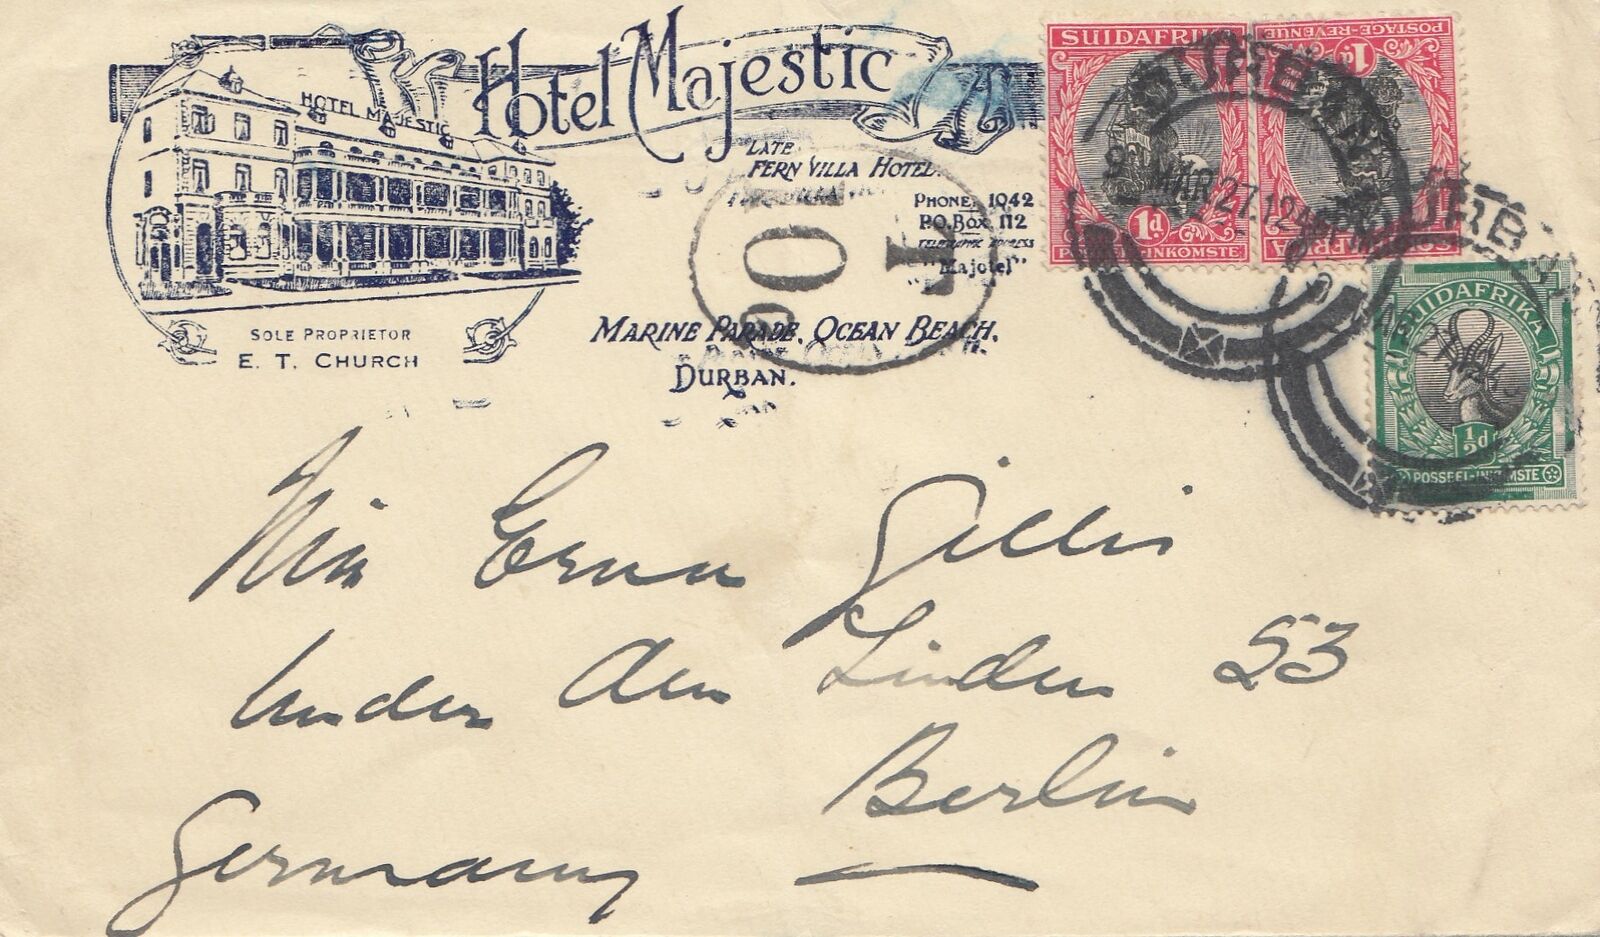 Hotel Majestic
HOTEL MAJESTIC
LATE
FERN VILLA HOTEL.
PHONE, 1042
P.O. BOX 112
TELEGRAPHIC ADDRESS
"MAJOTEL"
MARINE PARADE, OCEAN BEACH,
DURBAN.
SOLE PROPRIETOR
E. T. CHURCH
SUIDAFRIKA
1d
POSTAGE-REVENUE
1d
DURBAN
MAR 27
DURB
SUIDAFRIKA
½d
POSSEEL-INKOMSTE
Miss Erna Gillis
Unter den Linden 53
Berlin
Germany